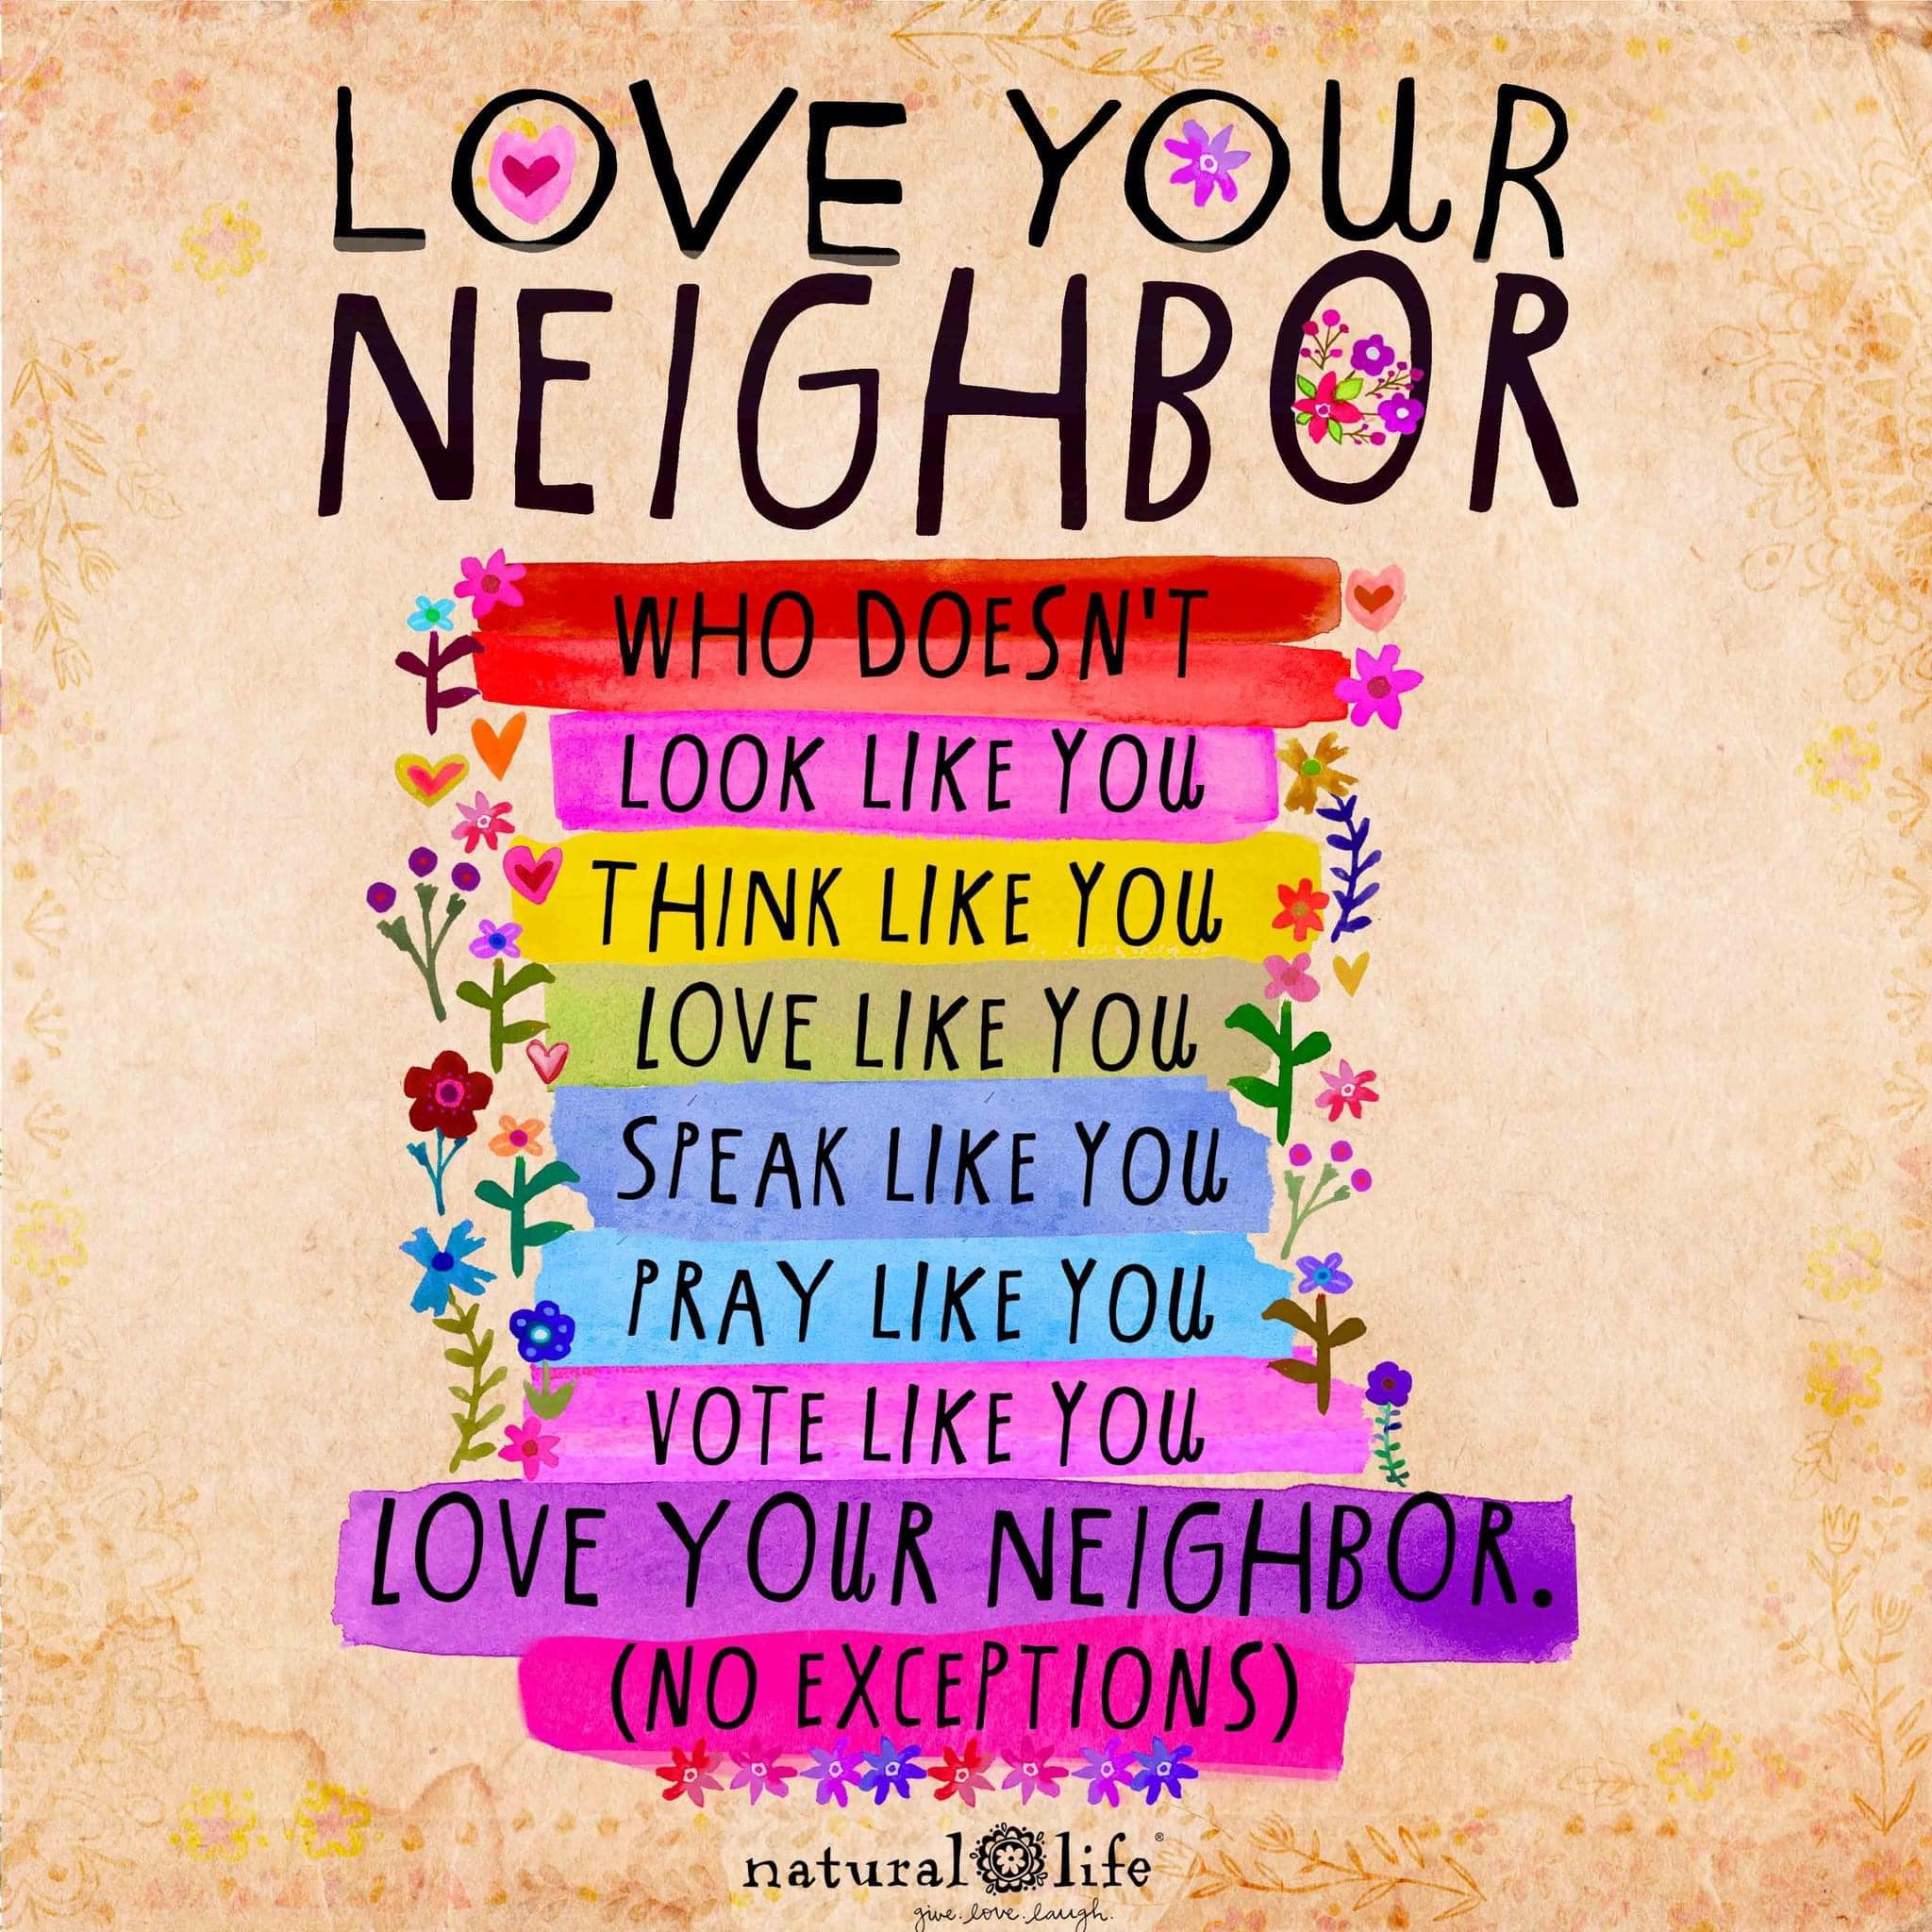 LOVE YOUR
NEIGHBOR
WHO DOESN'T
LOOK LIKE YOU
THINK LIKE YOU
LOVE LIKE YOU
SPEAK LIKE YOU
PRAY LIKE YOU
VOTE LIKE YOU
LOVE YOUR NEIGHBOR.
(NO EXCEPTIONS)
natural life®
give. love. laugh.